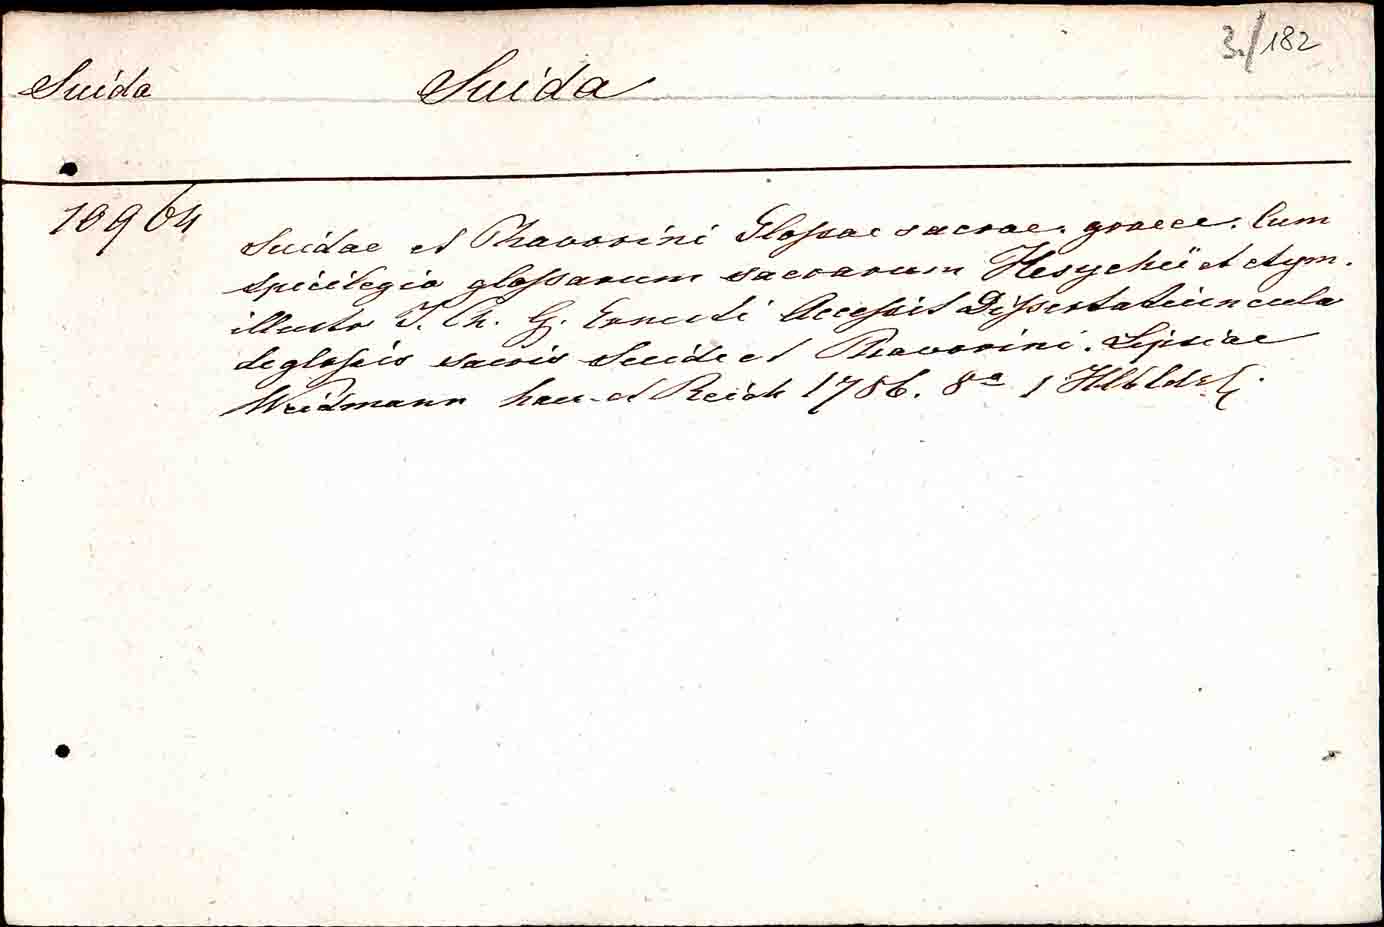 3./182
Suida Suida
10964
Suidae et Phavorini Glossae sacrae. graece. Cum
spicilegio glossarum sacrarum Hesychii et etym.
illustr J. Ch. G. Ernesti Accessit Dissertatiuncula
de glossis sacris Suidae et Phavorini. Lipsiae
Weidmann haer. et Reich 1786. 8° 1